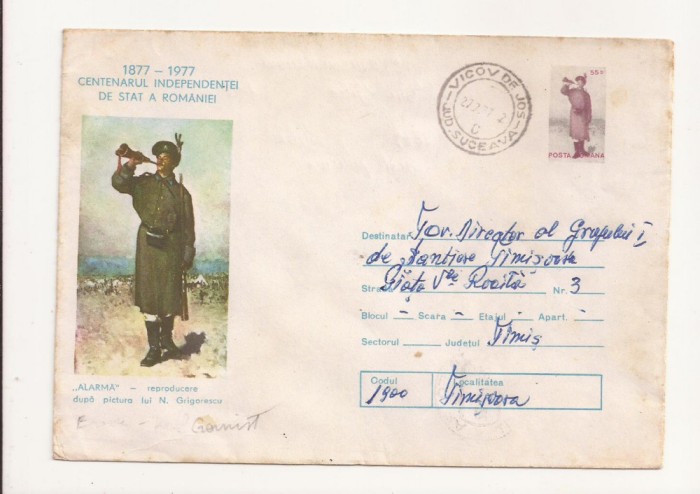 1877 – 1977
CENTENARUL INDEPENDENŢEI
DE STAT A ROMÂNIEI
VICOV DE JOS
JUD. SUCEAVA
55 b
POSTA ROMÂNA
Destinatar Tov. Director al Grupului I,
de Șantiere Timișoara
Str. Piața V^le Roaită Nr. 3
Blocul – Scara – Etajul – Apart. –
Sectorul Județul Timiș
Codul Localitatea
1900 Timișoara
„ALARMA" – reproducere
după pictura lui N. Grigorescu
Gornist